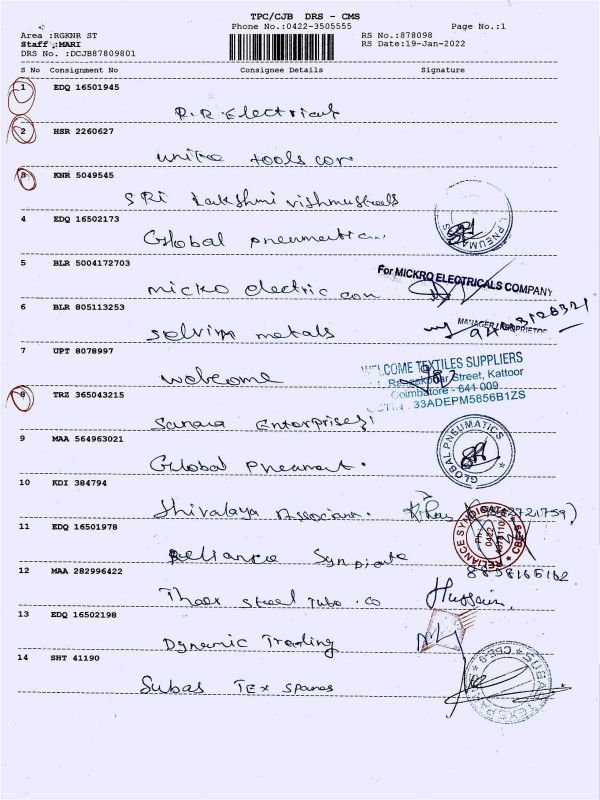 TPC/CJB DRS - CMS
Phone No.:0422-3505555
Page No.:1
Area :RGKNR ST
RS No.:878098
Staff :MARI
RS Date:19-Jan-2022
DRS No. :DCJB87809801
S No Consignment No Consignee Details Signature
1 EDQ 16501945
R.R Electrical
2 HSR 2260627
unite tools cor
3 KNR 5049545
SRI Lakshmi vishmusteels
4 EDQ 16502173
Global pneumatic..
5 BLR 5004172703
For MICKRO ELECTRICALS COMPANY
mickro electric con
6 BLR 805113253
MANAGER / PROPRIETOR
metals
7 UPT 8078997
WELCOME TEXTILES SUPPLIERS
Street, Kattoor
welcome
Coimbatore - 641 009.
33ADEPM5856B1ZS
8 TRZ 365043215
Enterprises
9 MAA 564963021
GLOBAL PNEUMATICS
Global Pneumat.
10 KDI 384794
Shivalaya Associan.
11 EDQ 16501978
RELIANCE SYNDICATE
Ph: 0422
CBE-9
Reliance Syndicate
12 MAA 282996422
Thoor steel Tube.co
Hussain.
13 EDQ 16502198
Dynamic Trading
14 SHT 41190
CBE-9
Subas Tex spares